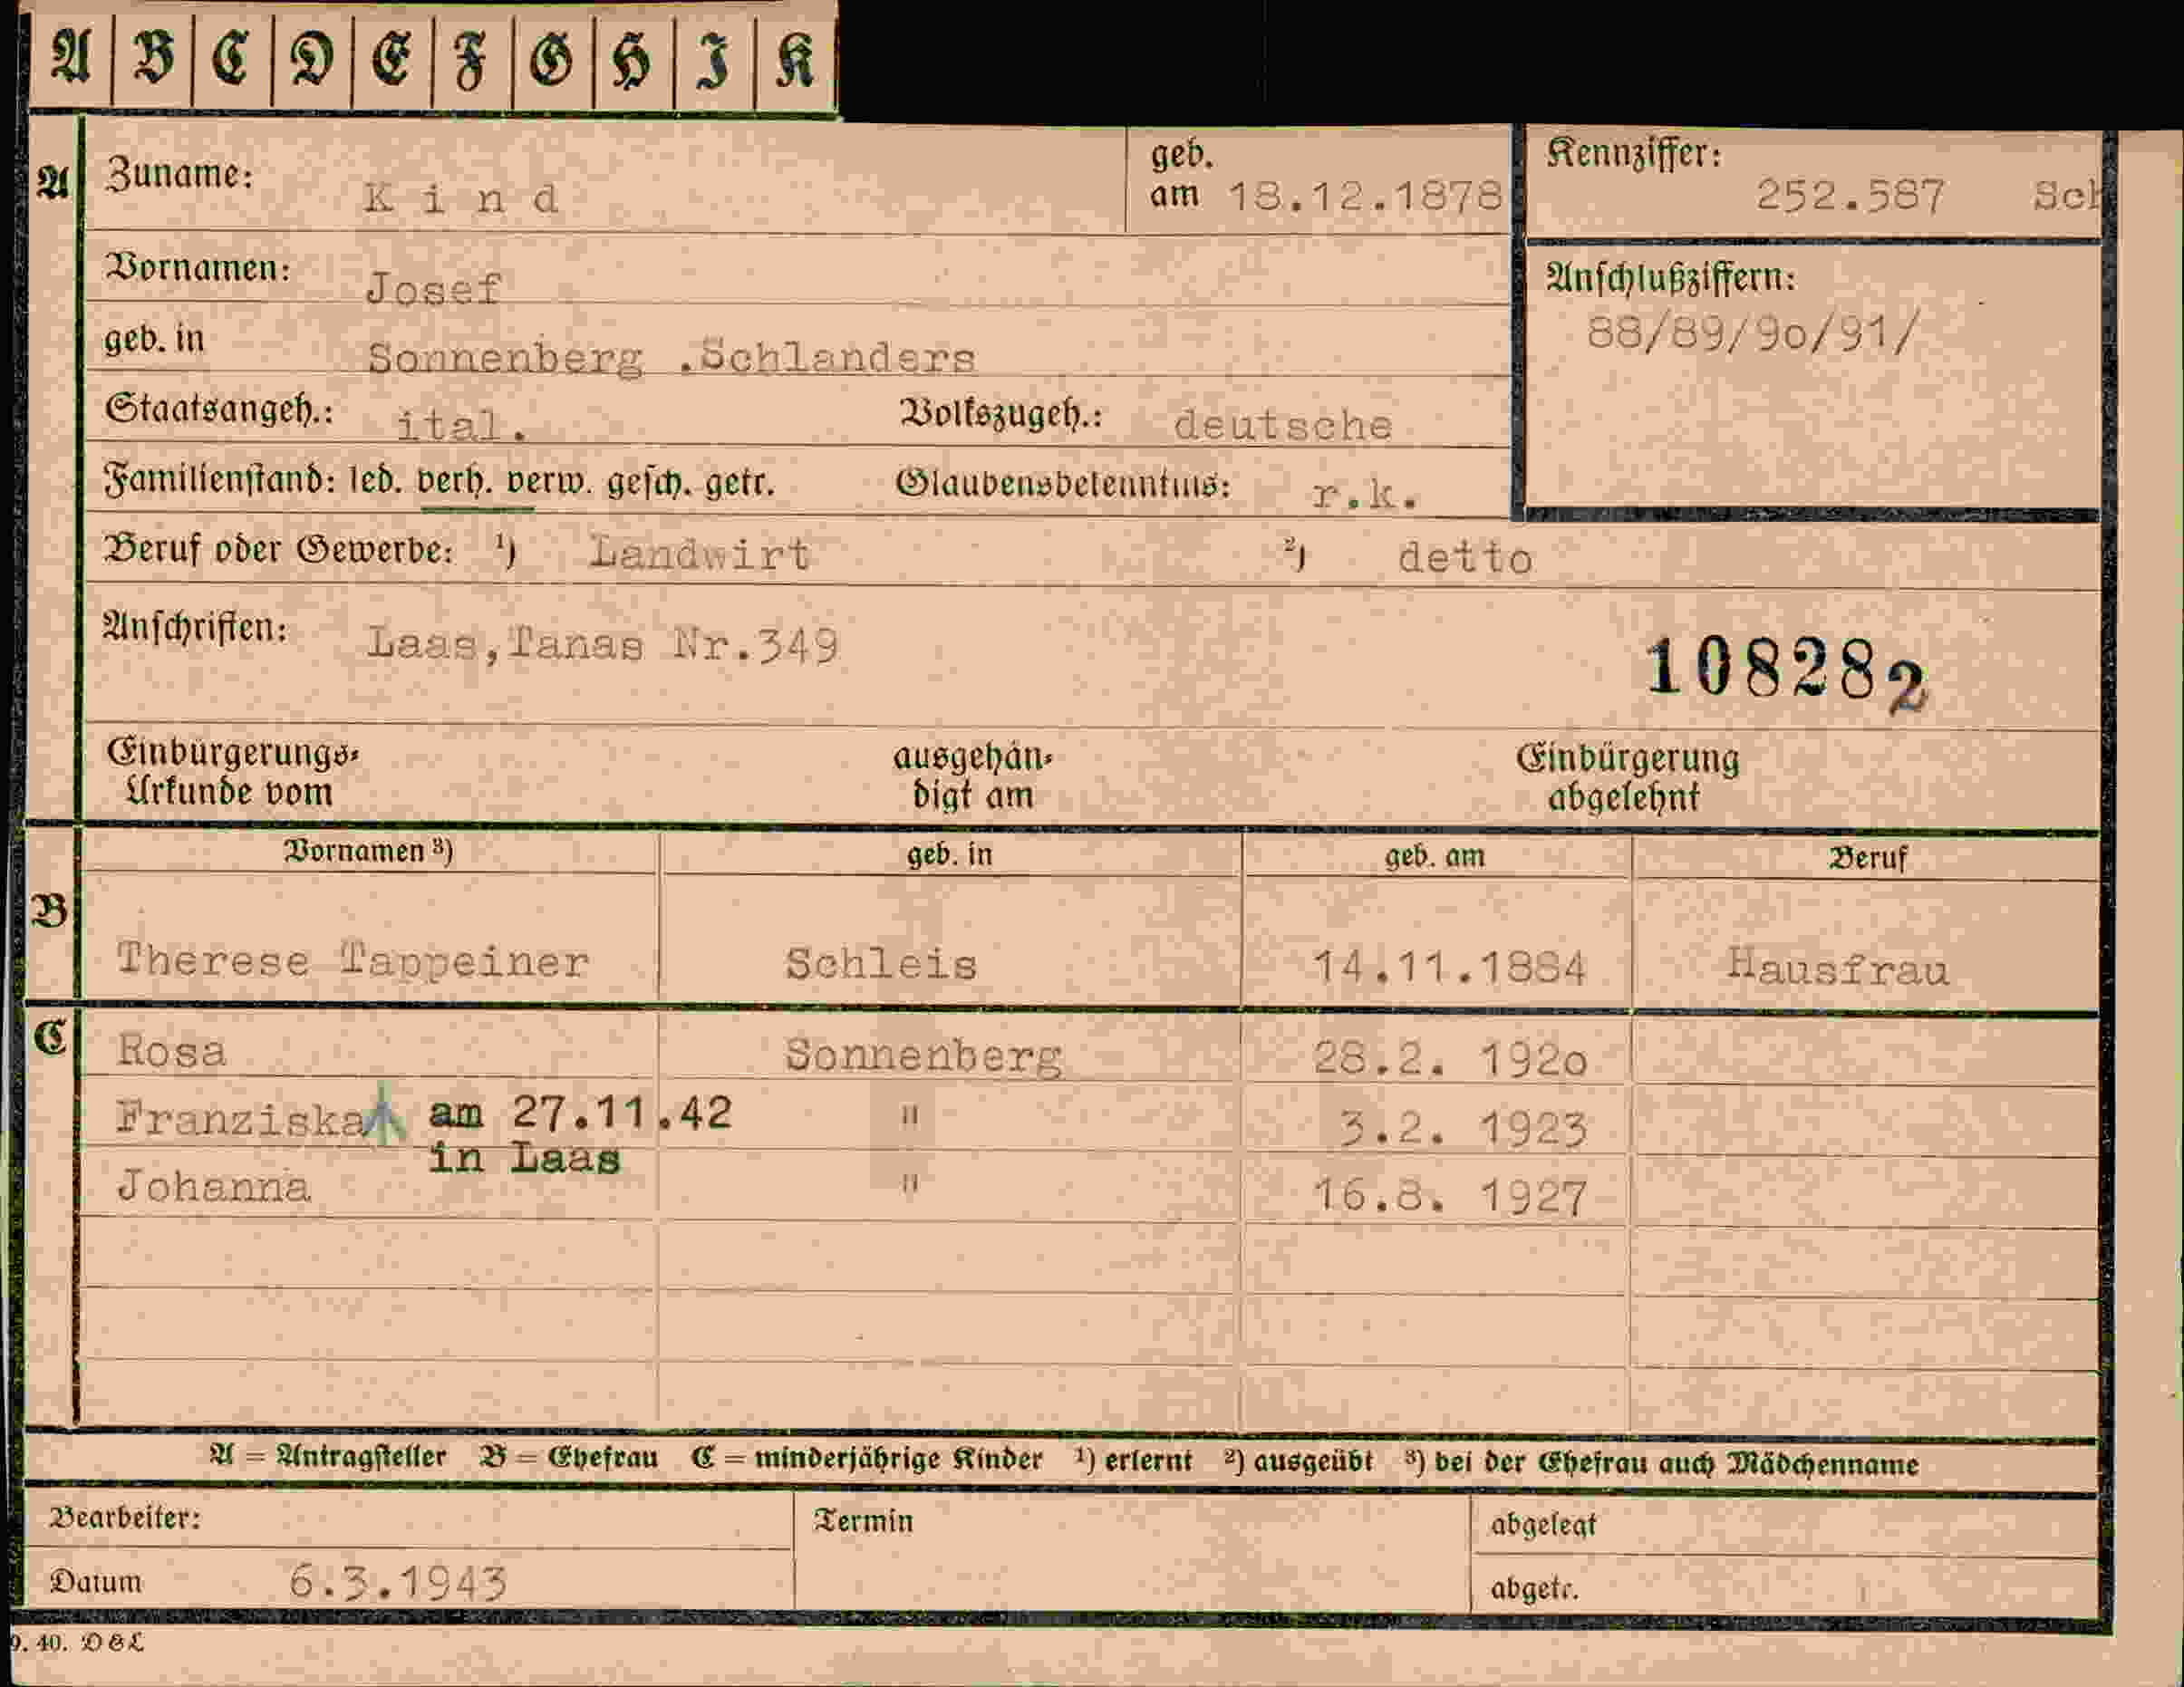 A B C D E F G H I K
A Zuname: Kind geb. am 18.12.1878 Kennziffer: 252.587 Sch
Vornamen: Josef Anschlußziffern:
88/89/9o/91/
geb. in Sonnenberg .Schlanders
Staatsangeh.: ital. Volkszugeh.: deutsche
Familienstand: led. verh. verw. gesch. getr. Glaubensbekenntnis: r.k.
Beruf oder Gewerbe: ¹) Landwirt ²) detto
Anschriften: Laas,Tanas Nr.349
108282
Einbürgerungs= ausgehän= Einbürgerung
Urkunde vom digt am abgelehnt
Vornamen ³) geb. in geb. am Beruf
B
Therese Tappeiner Schleis 14.11.1884 Hausfrau
C Rosa Sonnenberg 28.2. 192o
Franziska am 27.11.42 " 3.2. 1923
in Laas
Johanna " 16.8. 1927
A = Antragsteller B = Ehefrau C = minderjährige Kinder ¹) erlernt ²) ausgeübt ³) bei der Ehefrau auch Mädchenname
Bearbeiter: Termin abgelegt
Datum 6.3.1943 abgetr.
9. 40. D&L